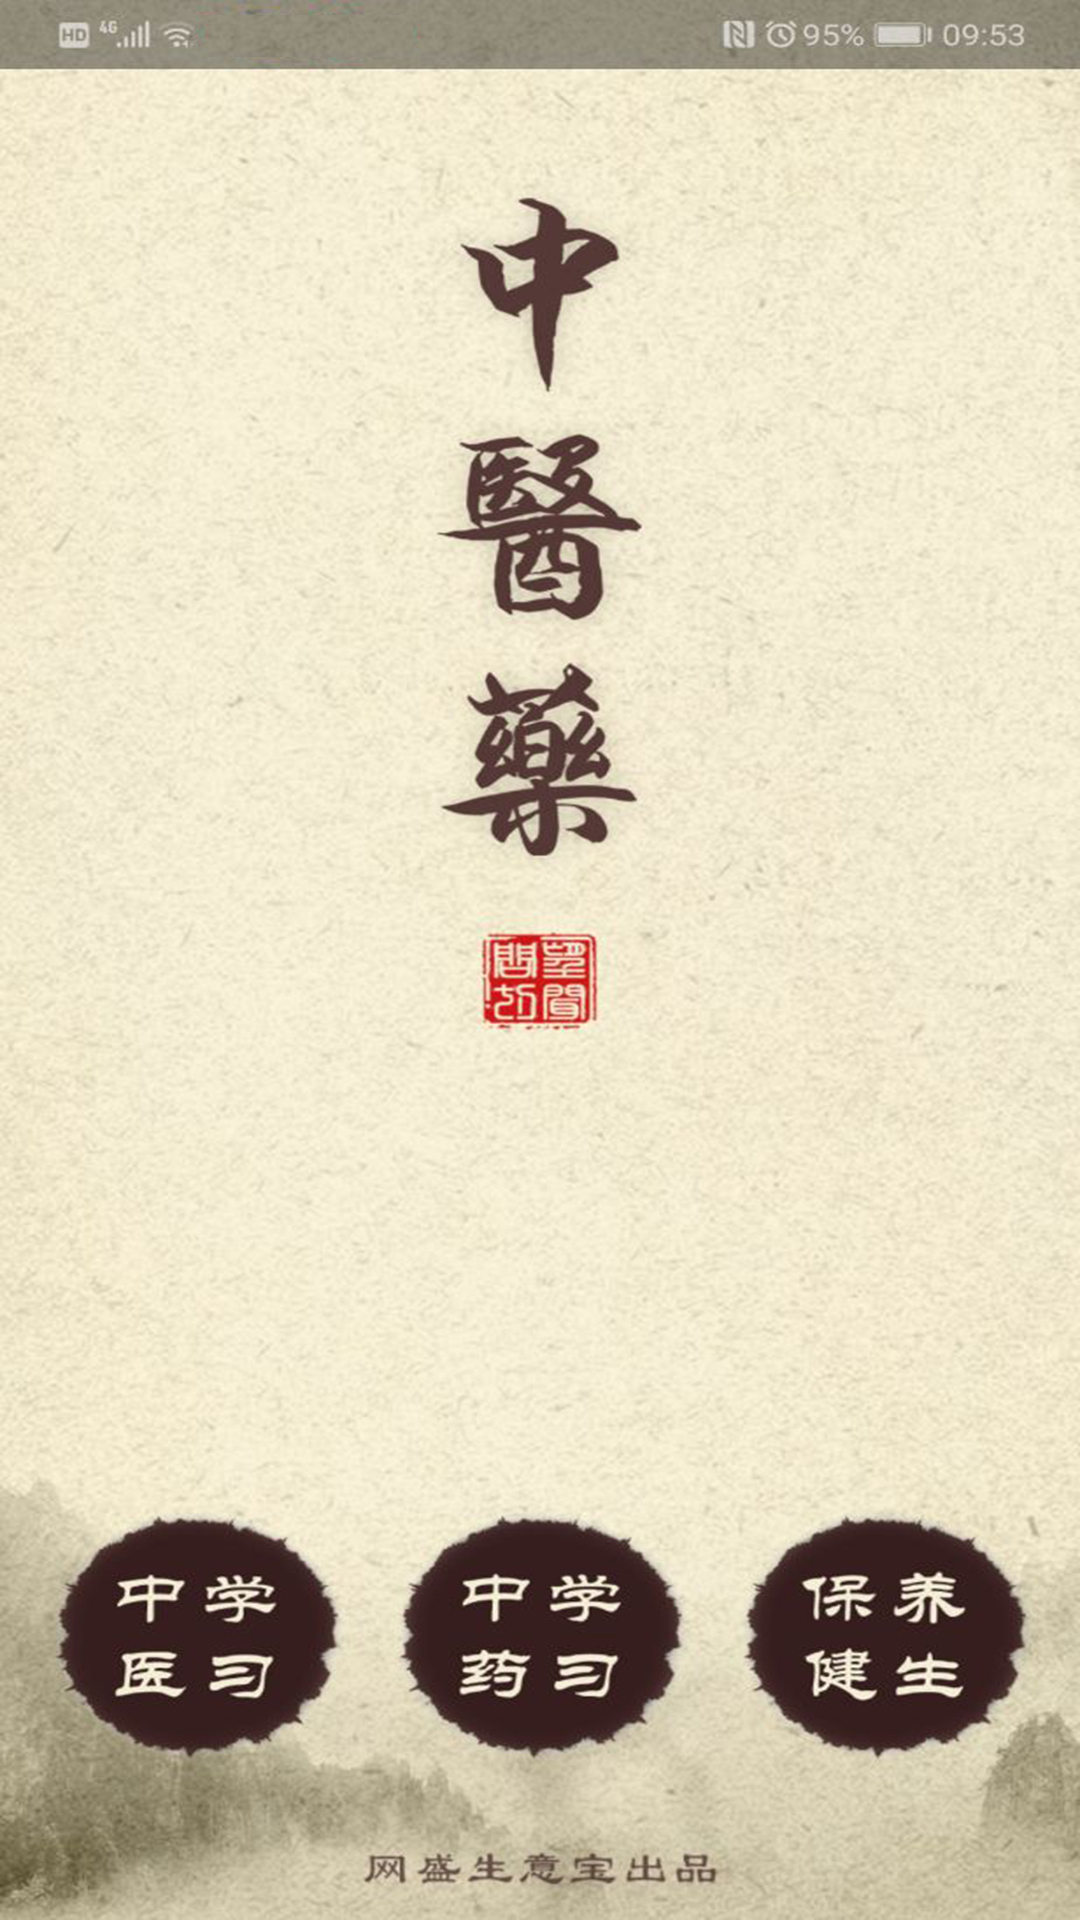 HD 4G 95% 09:53
中
醫
藥
望聞
問切
中学 中学 保养
医习 药习 健生
网盛生意宝出品